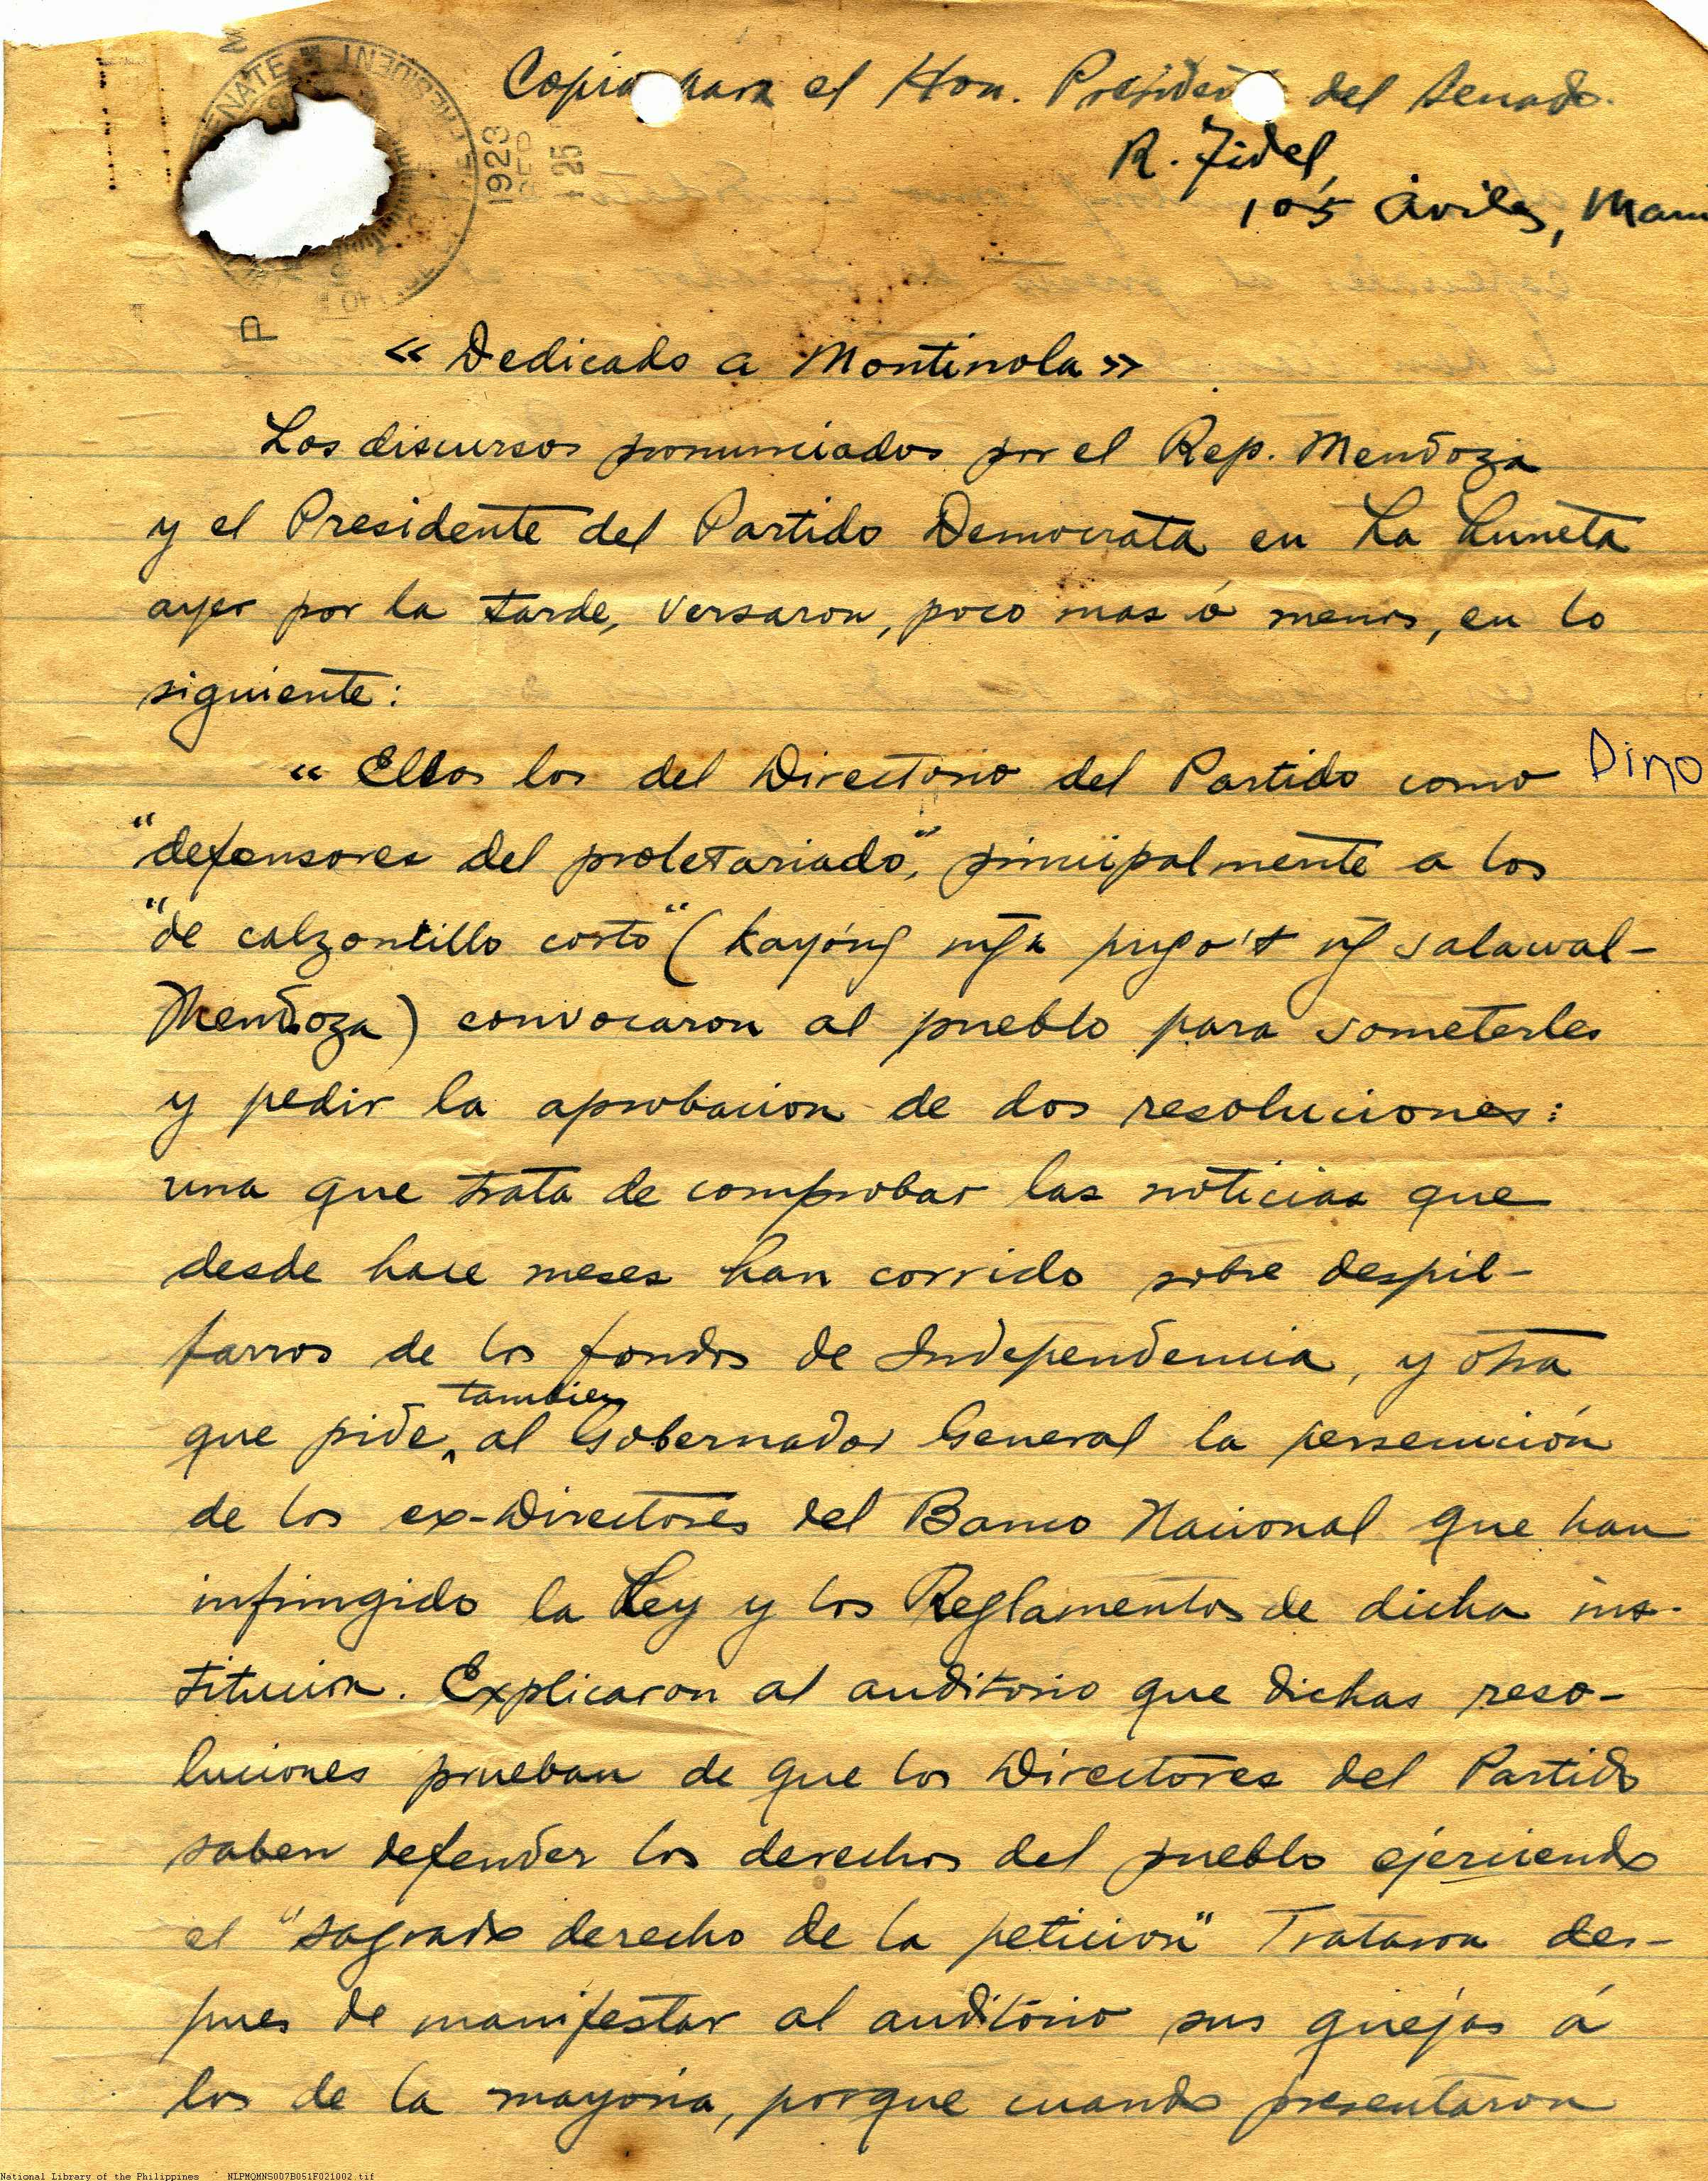 Copia para el Hon. Presidente del Senado.
R. Fidel,
105 Aviles, Man
SENATE PRESIDENT
1923
SEP
25
P
« Dedicado a Montinola »
Los discursos pronunciados por el Rep. Mendoza
y el Presidente del Partido Democrata en La Luneta
ayer por la tarde, versaron, poco mas ó menos, en lo
siguiente:
« Ellos los del Directorio del Partido como
Dino
"defensores del proletariado", principalmente a los
"de calzontillo corto" (kayóng mga pugo't ng salawal-
Mendoza) convocaron al pueblo para someterles
y pedir la aprobacion de dos resoluciones:
una que trata de comprobar las noticias que
desde hace meses han corrido sobre despil-
farros de los fondos de Independencia, y otra
que pide, tambien al Gobernador General la persecución
de los ex-Directores del Banco Nacional que han
infringido la Ley y los Reglamentos de dicha ins-
titucion. Explicaron al auditorio que dichas reso-
luciones prueban de que los Directores del Partido
saben defender los derechos del pueblo ejerciendo
el "sagrado derecho de la peticion" Trataron des-
pues de manifestar al auditório sus quejas á
los de la mayoria, porque cuando presentaron
National Library of the Philippines NLPMQMNS007B051F021002.tif